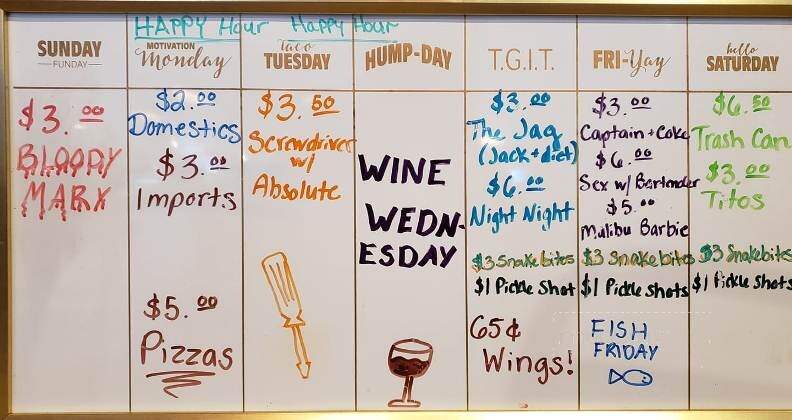 HAPPY Hour Happy Hour
SUNDAY
FUNDAY
$3.00
BLOODY
MARY
MOTIVATION
Monday
$2.00
Domestics
$3.00
Imports
$5.00
Pizzas
taco
TUESDAY
$3.50
Screwdriver
w/
Absolute
HUMP-DAY
WINE
WEDN-
ESDAY
T.G.I.T.
$3.00
The Jag
(Jack + diet)
$6.00
Night Night
$3 Snakebites
$1 Pickle Shot
65¢
Wings!
FRI-Yay
$3.00
Captain + Coke
$6.00
Sex w/ Bartender
$5.00
Malibu Barbie
$3 Snakebites
$1 Pickle Shots
FISH
FRIDAY
hello
SATURDAY
$6.50
Trash Can
$3.00
Titos
$3 Snakebites
$1 Pickle Shots